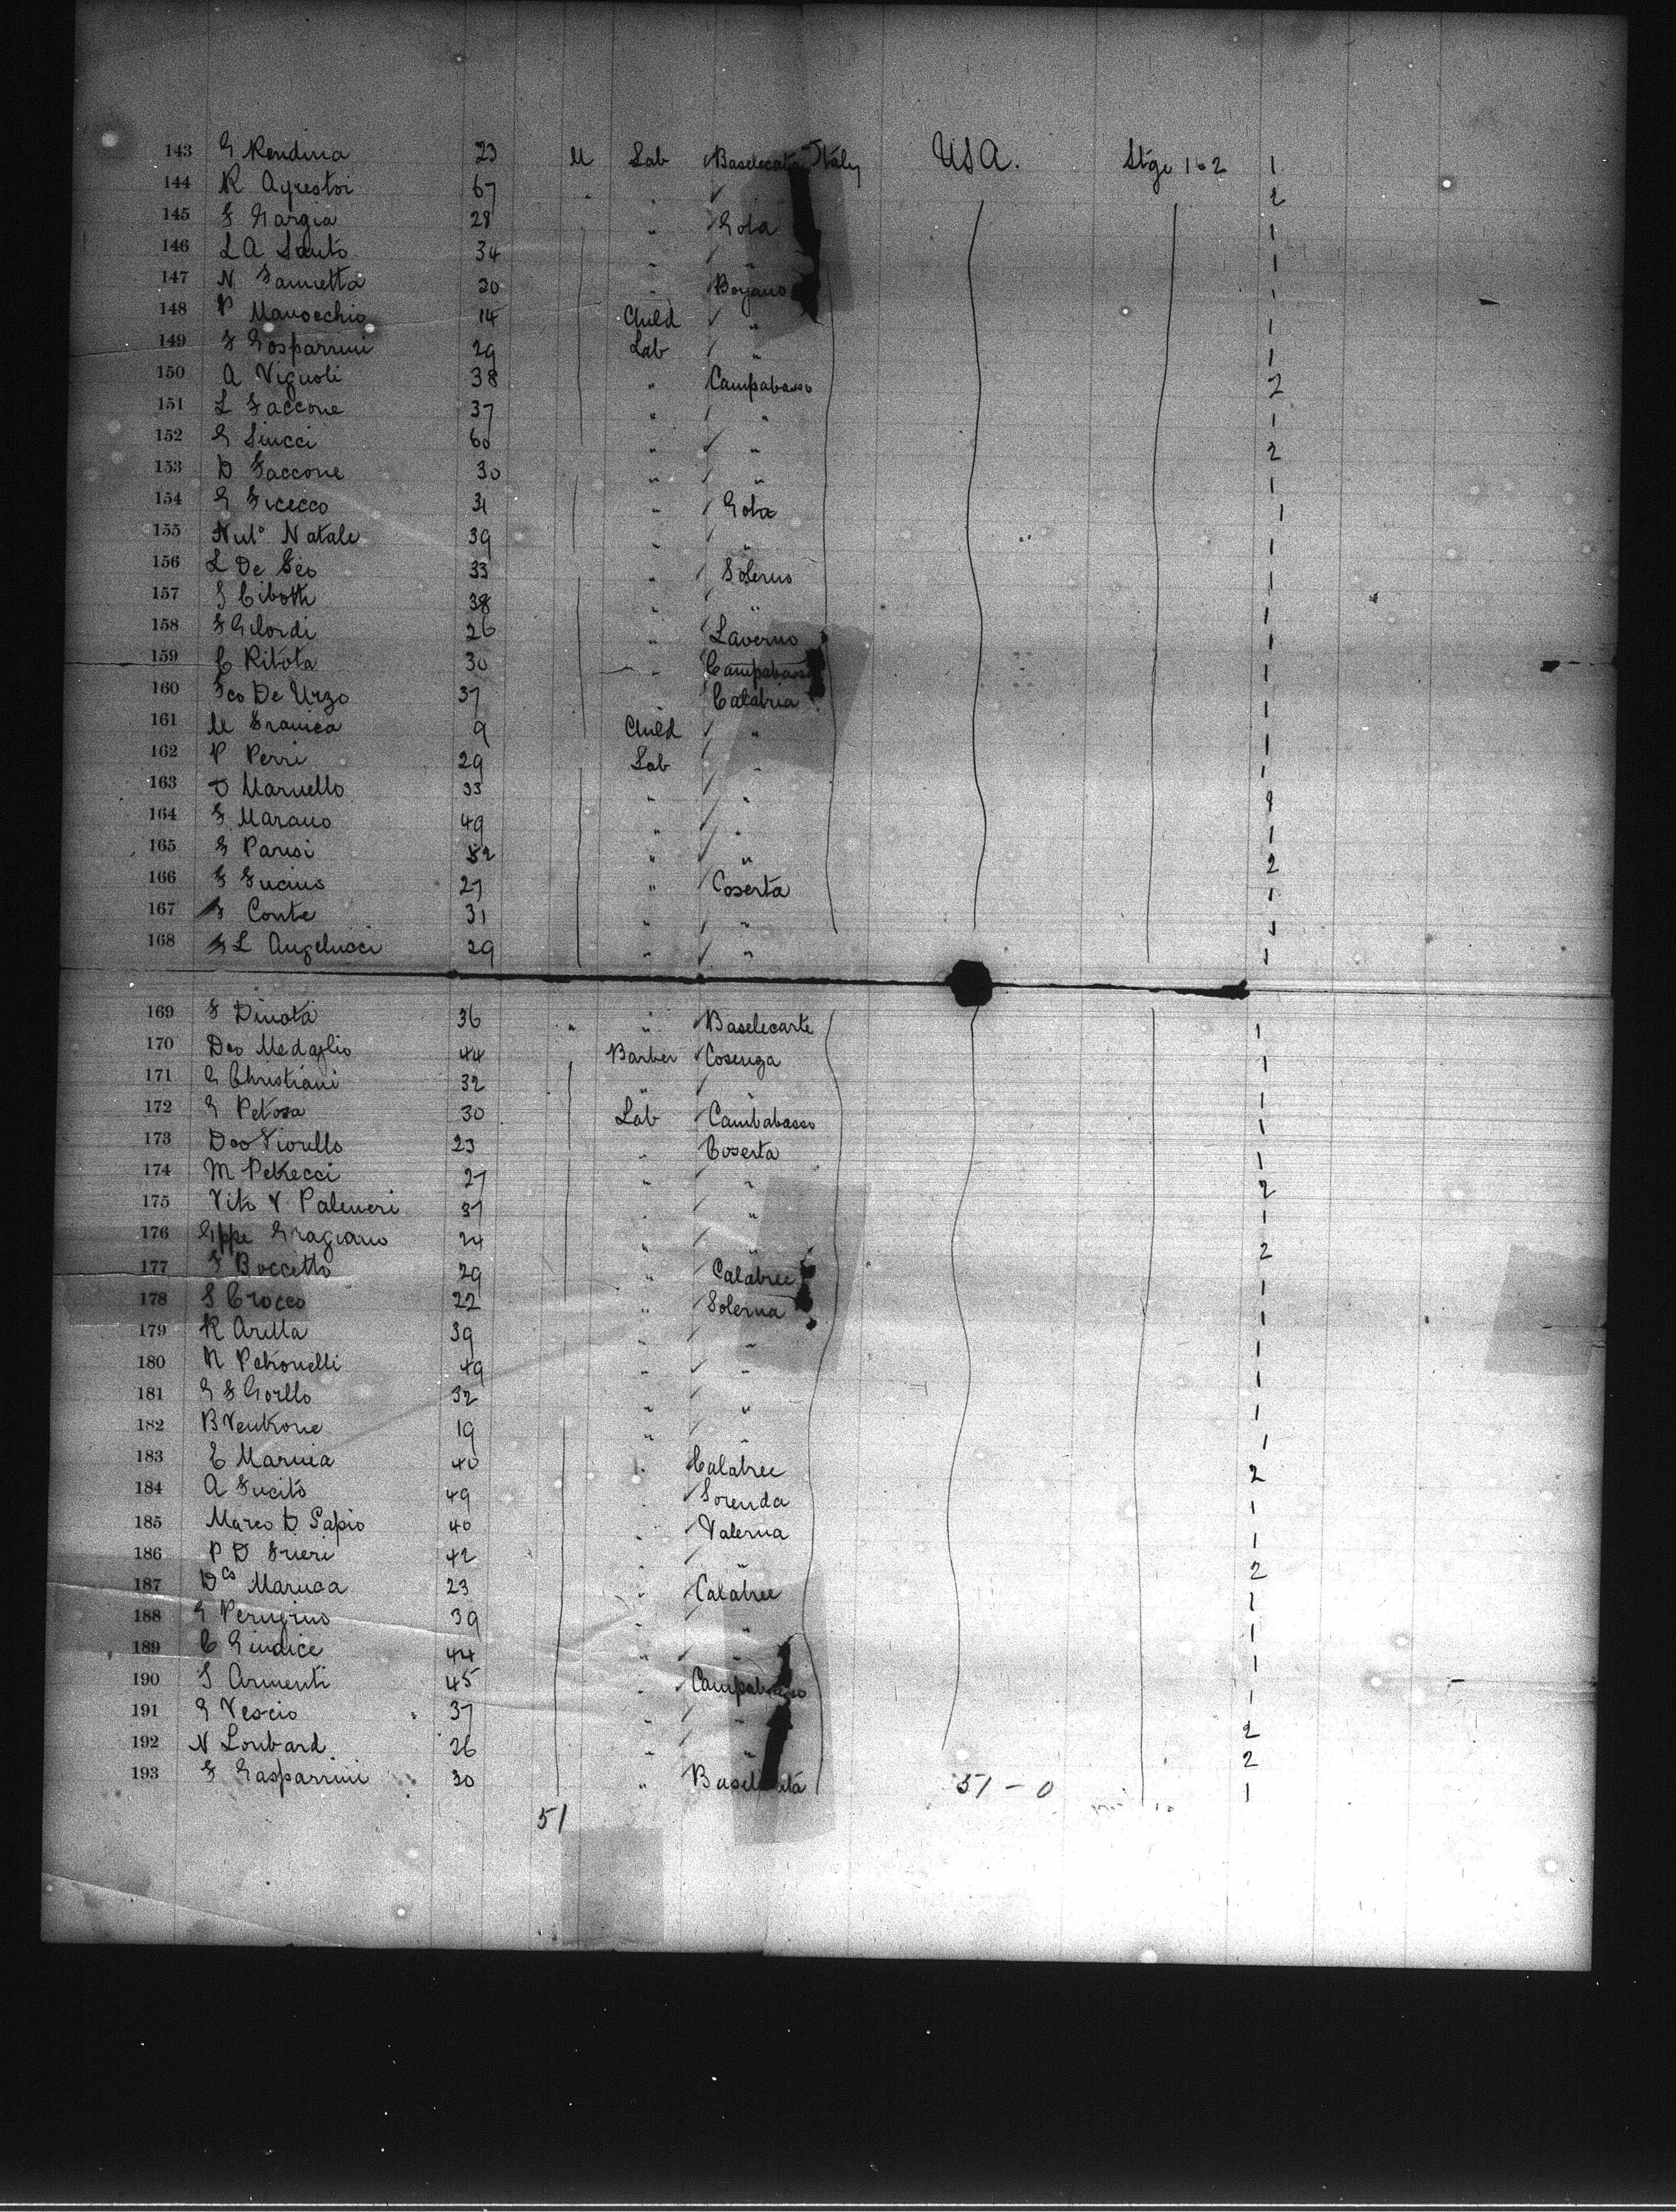 143 G Rendina 23 M Lab Baselecata Italy USA. Stge 1 & 2 1
144 R Agrestoi 67 " " 2
145 F Gargia 28 " Gola 1
146 L A Santo 34 " " 1
147 N Iannetta 20 " Boyano 1
148 P Manocchio 14 Child " 1
149 F Gosparrini 29 Lab " 1
150 A Vignoli 38 " Campabasso 2
151 L Iaccone 37 " " 1
152 G Siucci 60 " " 2
153 D Iaccone 30 " " 1
154 G Ficecco 31 " Gola 1
155 Natale 39 " " 1
156 L De Geo 33 " Solerno 1
157 G Cibotti 38 " " 1
158 F Gilordi 26 " Laverno 1
159 C Ritota 30 " Campabasso 1
160 Fco De Urzo 37 Calabria 1
161 M Franica 9 Child " 1
162 P Perri 29 Lab " 1
163 D Maruello 33 " "
164 F Marano 49 " " 1
165 G Parisi 52 " " 2
166 F Fucius 27 " Coserta 1
167 F Conte 31 " " 1
168 F L Angelucci 29 " " 1
169 F Dinota 36 " " Baselecarte 1
170 Dco Medaglio 44 Barber Cosenza 1
171 G Christiani 32 " " 1
172 G Petosa 30 Lab Cambabasso 1
173 Dco Fiorello 23 " Coserta 1
174 M Petrecci 27 " " 2
175 Vito V Palmeri 37 " " 1
176 Gppe Gragiano 24 " " 2
177 F Boccetto 29 " Calabree 1
178 S Crocco 22 " Solerna 1
179 R Arilla 39 " " 1
180 N Petronelli 49 " " 1
181 G F Gorllo 32 " " 1
182 B Ventrone 19 " " 1
183 C Marnia 40 " Calabree 2
184 A Fucito 49 " Sorenda 1
185 Marco D Sapio 40 " Valerna 1
186 P D Frieri 42 " " 2
187 Dco Maruca 23 " Calabree 1
188 G Perugino 39 " " 1
189 C Giudice 44 " " 1
190 S Armenti 45 " Campabasso 1
191 G Vescio 37 " " 2
192 N Lombard 26 " " 2
193 F Gasparrini 30 " 1
51 51 - 0